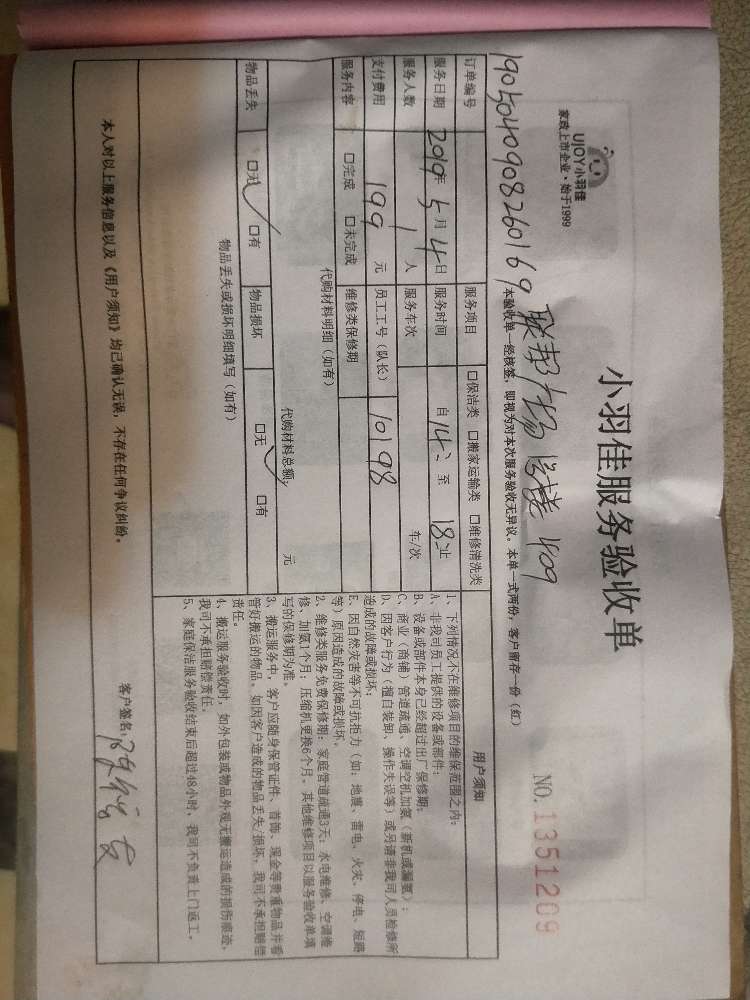 UJOY小羽佳
家政上市企业·始于1999
小羽佳服务验收单
NO.1351209
本验收单一经核签，即视为对本次服务验收无异议。本单一式两份，客户留存一份（红）
1905040908260169 联邦广场 409
订单编号 服务项目 □保洁类 □搬家运输类 □维修清洗类
服务日期 2019年 5月 4日 服务时间 自 14: 至 18: 止
服务人数 1 人 服务车次 车/次
支付费用 199 元 员工工号（队长） 10198
服务内容 □完成 □未完成 维修类保修期
代购材料明细（如有）
代购材料总额： 元
物品丢失 □无 ✓ □有 物品损坏 □无 ✓ □有
物品丢失或损坏明细填写（如有）
用户须知
1、下列情况不在维修项目的维保范围之内：
A、非我司员工提供的设备或部件；
B、设备或部件本身已经超过出厂保修期；
C、商业（商铺）管道疏通、空调空机加氨（新机或漏氨）；
D、因客户行为（擅自装卸、操作失误等）或另请非我司人员检修所
造成的故障或损坏；
E、因自然灾害等不可抗拒力（如：地震、雷电、火灾、停电、短路
等）原因造成的故障或损坏。
2、维修类服务免费保修期：家庭管道疏通3天；水电维修、空调维
修、加氨1个月；压缩机更换6个月，其他维修项目以服务验收单填
写的保修期为准。
3、搬运服务中，客户应随身保管证件、首饰、现金等贵重物品并看
管好搬运的物品，如因客户造成的物品丢失/损坏，我司不承担赔偿
责任。
4、搬运服务验收时，如外包装或物品外观无搬运造成的损伤痕迹，
我司不承担赔偿责任。
5、家庭保洁服务验收结束后超过48小时，我司不负责上门返工。
本人对以上服务信息以及《用户须知》均已确认无误，不存在任何争议纠纷。
客户签名：